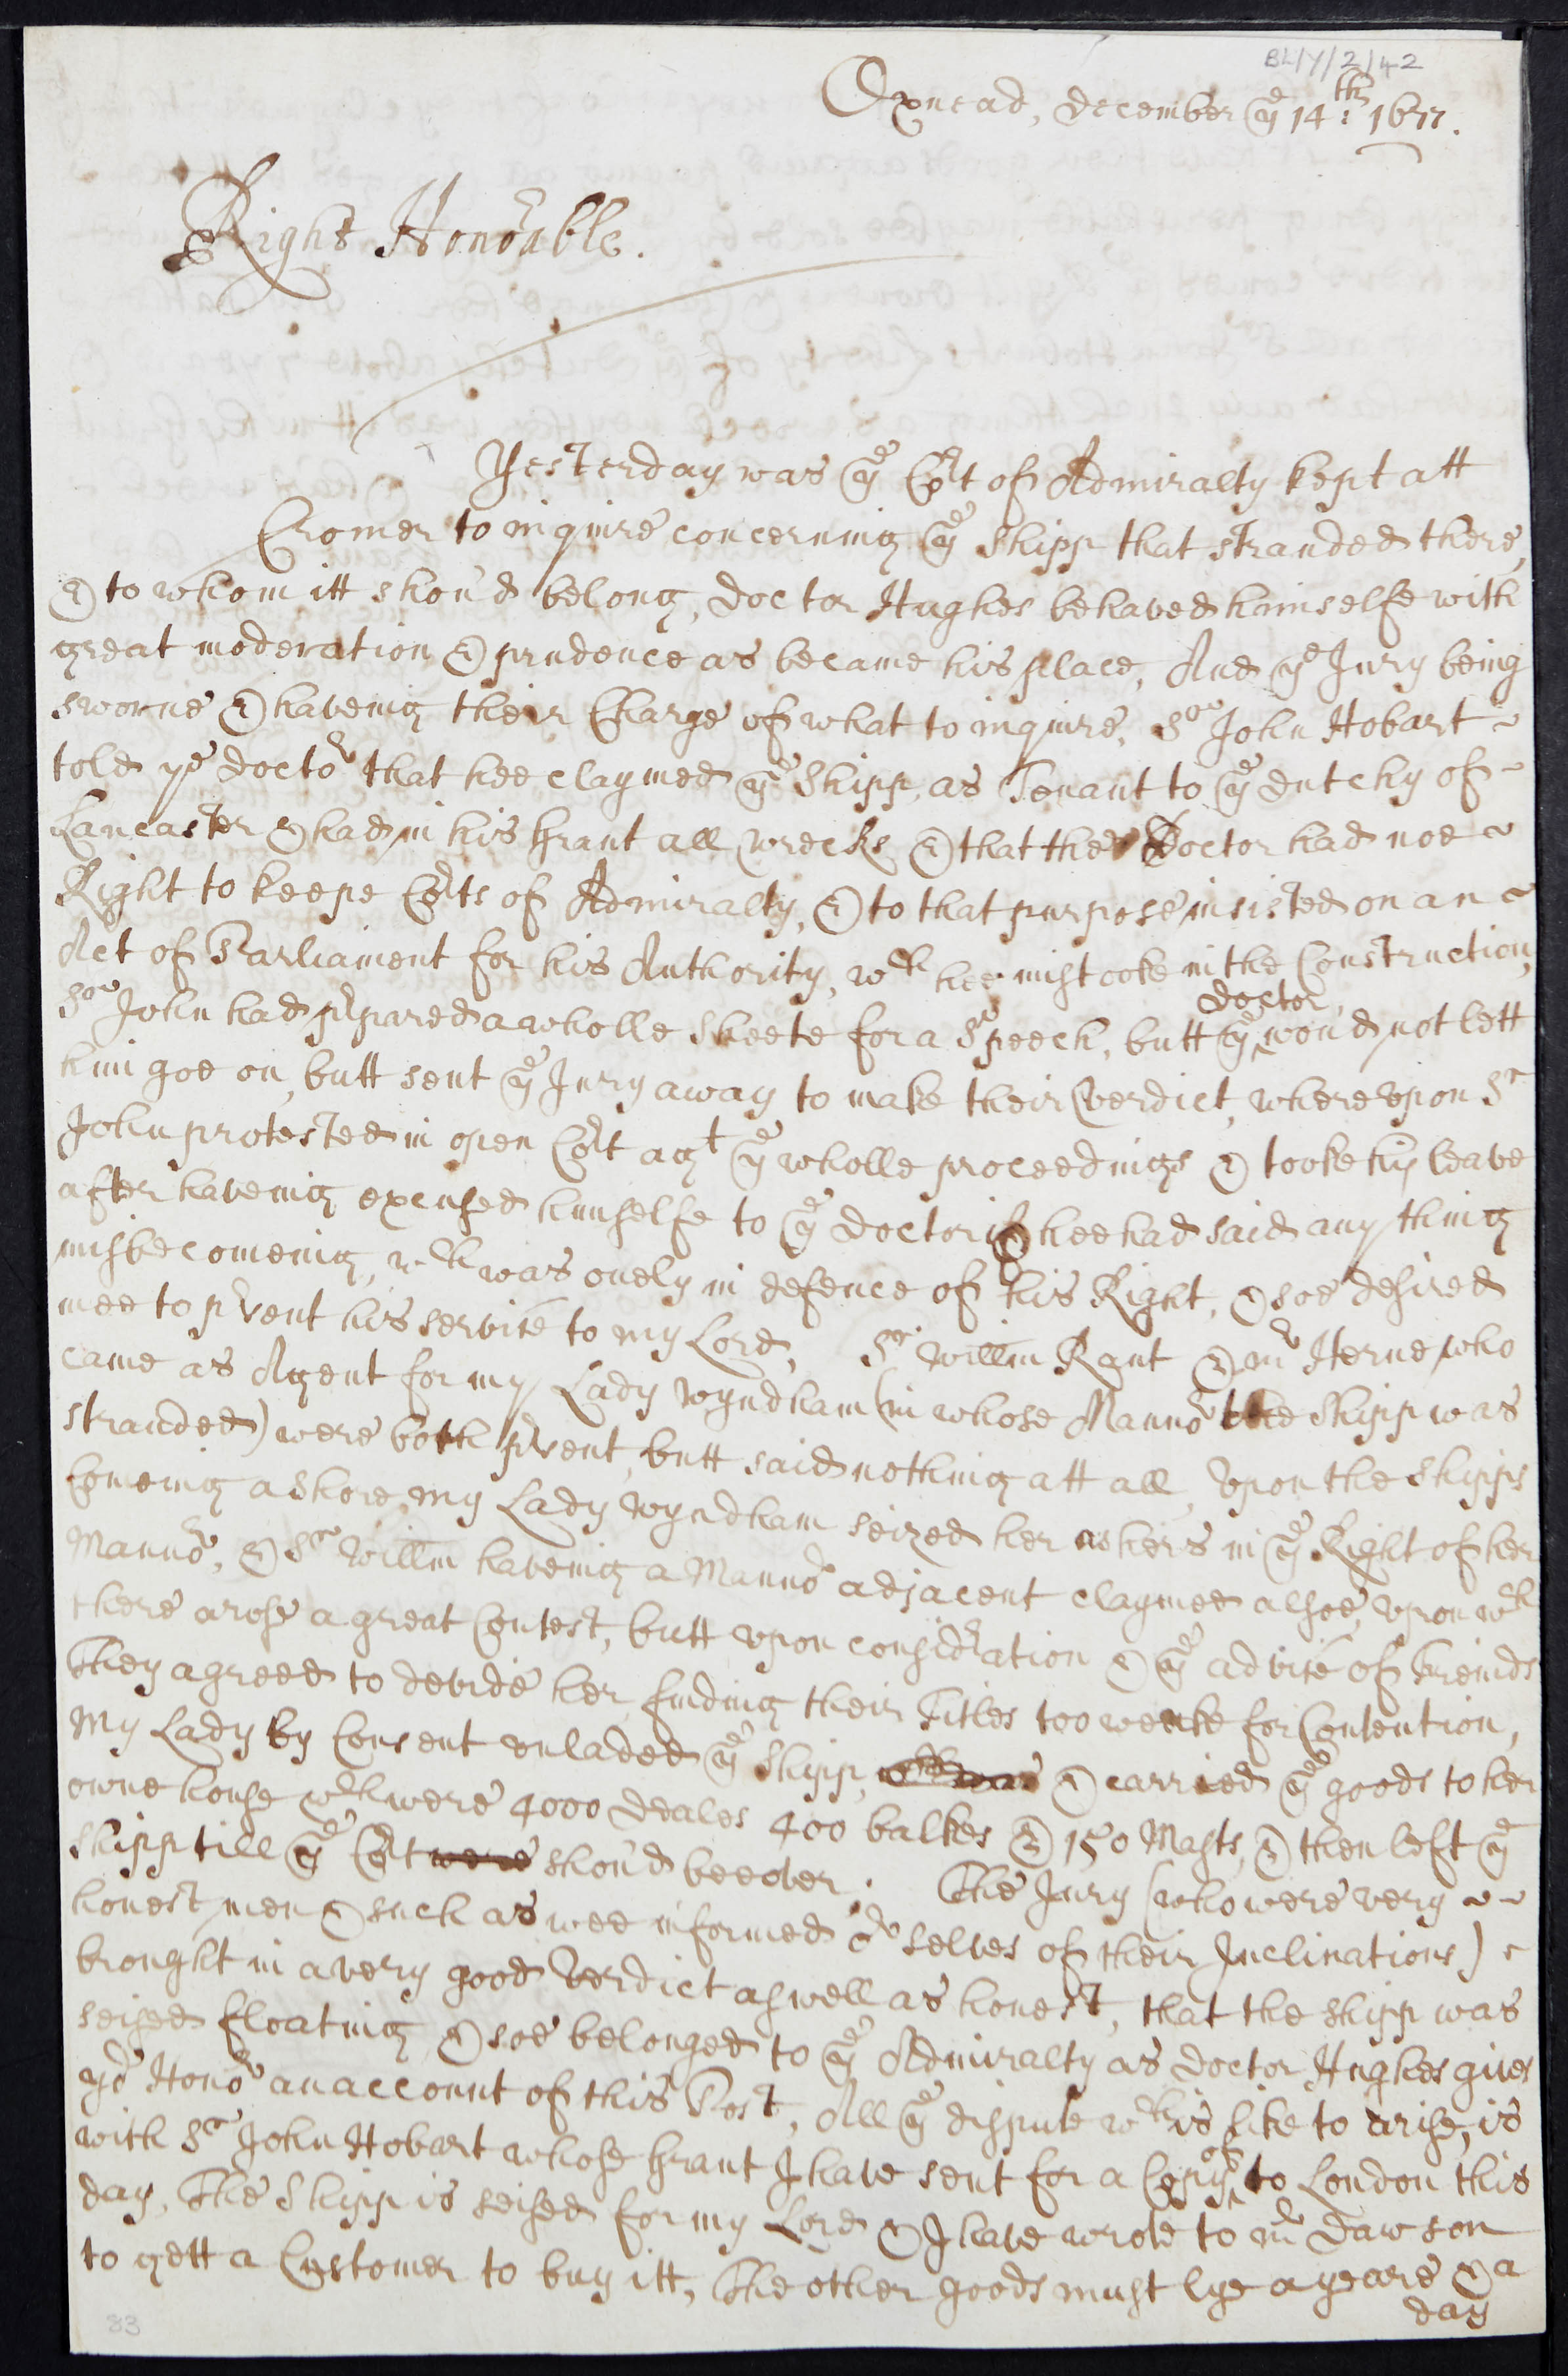 BL/Y/2/42
Oxnead, December ye 14th: 1677.
Right Honorable.
Yesterday was ye Cort of Admiralty kept att
Cromer to inquire concerning ye Shipp that stranded there,
& to whom itt shou'd belong, Doctor Hughes behaved himselfe with
great moderation & prudence as became his place, And ye Jury being
sworne & haveing their Charge of what to inquire, Sr John Hobart ~
told ye Doctor that hee claymed ye Shipp, as Tenant to ye Dutchy of ~
Lancaster & had in his Grant all wrecks, & that the Doctor had noe ~
Right to keepe Corts of Admiralty, & to that purpose insisted on an ~
Act of Parliament for his Authority, wch hee mistooke in the Construction,
Sr John had prpared a wholle Sheete for a Speech, butt ye Doctor wou'd not lett
him goe on, butt sent ye Jury away to make their Verdict, whereupon Sr
John protested in open Cort agt ye wholle proceedings & tooke his leave
after haveing excused himselfe to ye Doctor if hee had said any thing
misbecomeing, wch was onely in defence of his Right, & soe desired
mee to prsent his service to my Lord, Sr Willm Rant & mr Herne who
came as Agent for my Lady Wyndham (in whose Mannor the Shipp was
stranded) were both prsent, butt said nothing att all, Upon the Shipps
Comeing ashore my Lady Wyndham seized her as hers in ye Right of her
Mannor, & Sr Willm haveing a Mannor adjacent claymed alsoe, upon wch
there arose a great Contest, butt upon considration & ye advise of freinds
They agreed to devide her, finding their Titles too weake for Contention,
My Lady by Consent unladed ye Shipp, & carried ye goods to her
owne house wch were 4000 Deales 400 balkes & 150 Masts, & then left ye
shipp till ye Cort were shou'd bee over. The Jury (who were very ~ ~
honest men & such as wee informed or selves of their Inclinations) ~
brought in a very good Verdict aswell as honest, that the shipp was
seized floating, & soe belonged to ye Admiralty as Doctor Hughes gives
yor Honor an account of this Post, All ye dispute wch is like to arise, is
with Sr John Hobart whose Grant I have sent for a Copy of to London this
day, The Shipp is seised for my Lord & I have wrote to mr Dawson
to gett a Customer to buy itt, The other goods must lye a yeare & a
day
83